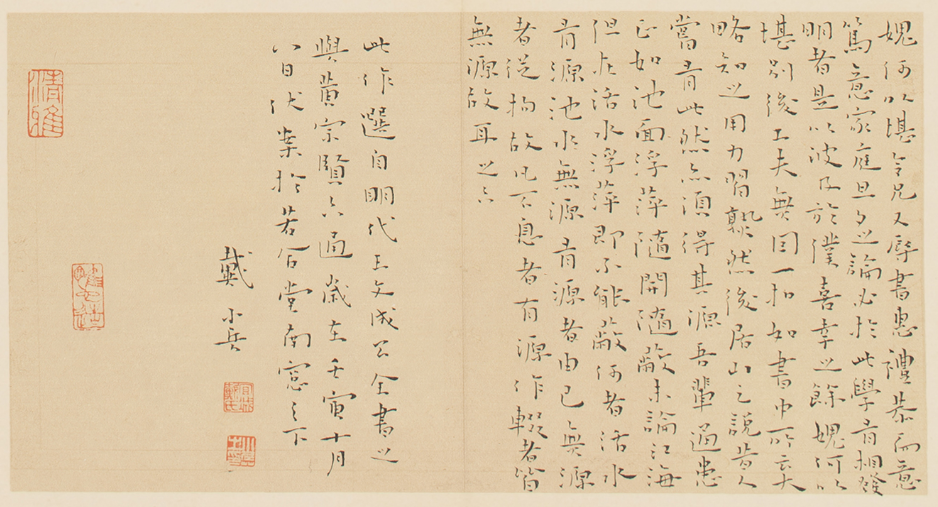 媿何以堪令兄又辱書惠禮恭而意
篤意家庭旦夕之論必於此學有相發
明者是以波及於僕喜幸之餘媿何以
堪別後工夫無因一扣如書中所云大
略知之用力習熟然後居山之說昔人
嘗有此然亦須得其源吾輩通患
正如池面浮萍隨開隨蔽未論江海
但在活水浮萍即不能蔽何者活水
有源池水無源有源者由己無源
者從物故凡不息者有源作輟者皆
無源故耳之六
此作選自明代王文成公全書之
與黃宗賢六通歲在壬寅十月
八日伏案於若合堂南窗之下
戴小兵
清雅